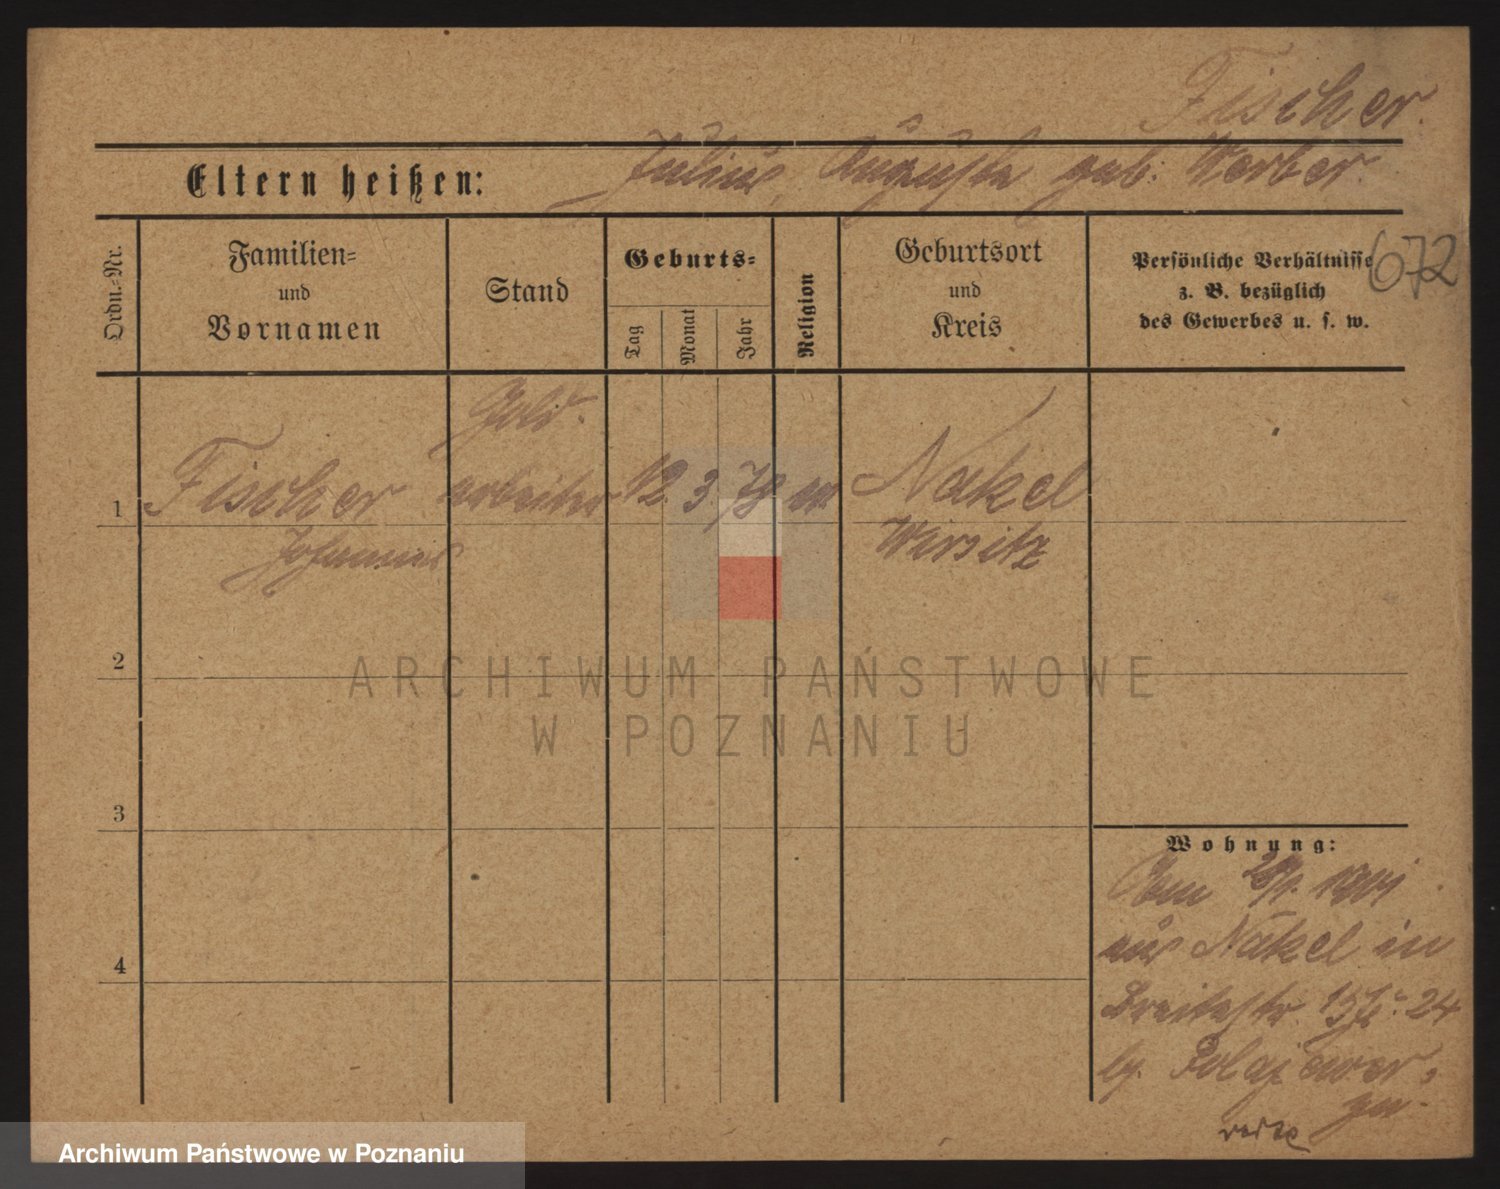 Fischer.
Eltern heißen: Julius, Auguste geb. Werber.
Ordn.-Nr.
Familien-
und
Vornamen
Stand
Geburts-
Tag
Monat
Jahr
Religion
Geburtsort
und
Kreis
Persönliche Verhältnisse
z. B. bezüglich
des Gewerbes u. s. w.
672
Gold-
1 Fischer arbeiter 12. 3. 78 Nakel
Johannes Wirsitz
2
3
4
Wohnung:
1901
aus Nakel in
Breitestr. 24
ARCHIWUM PAŃSTWOWE
W POZNANIU
Archiwum Państwowe w Poznaniu